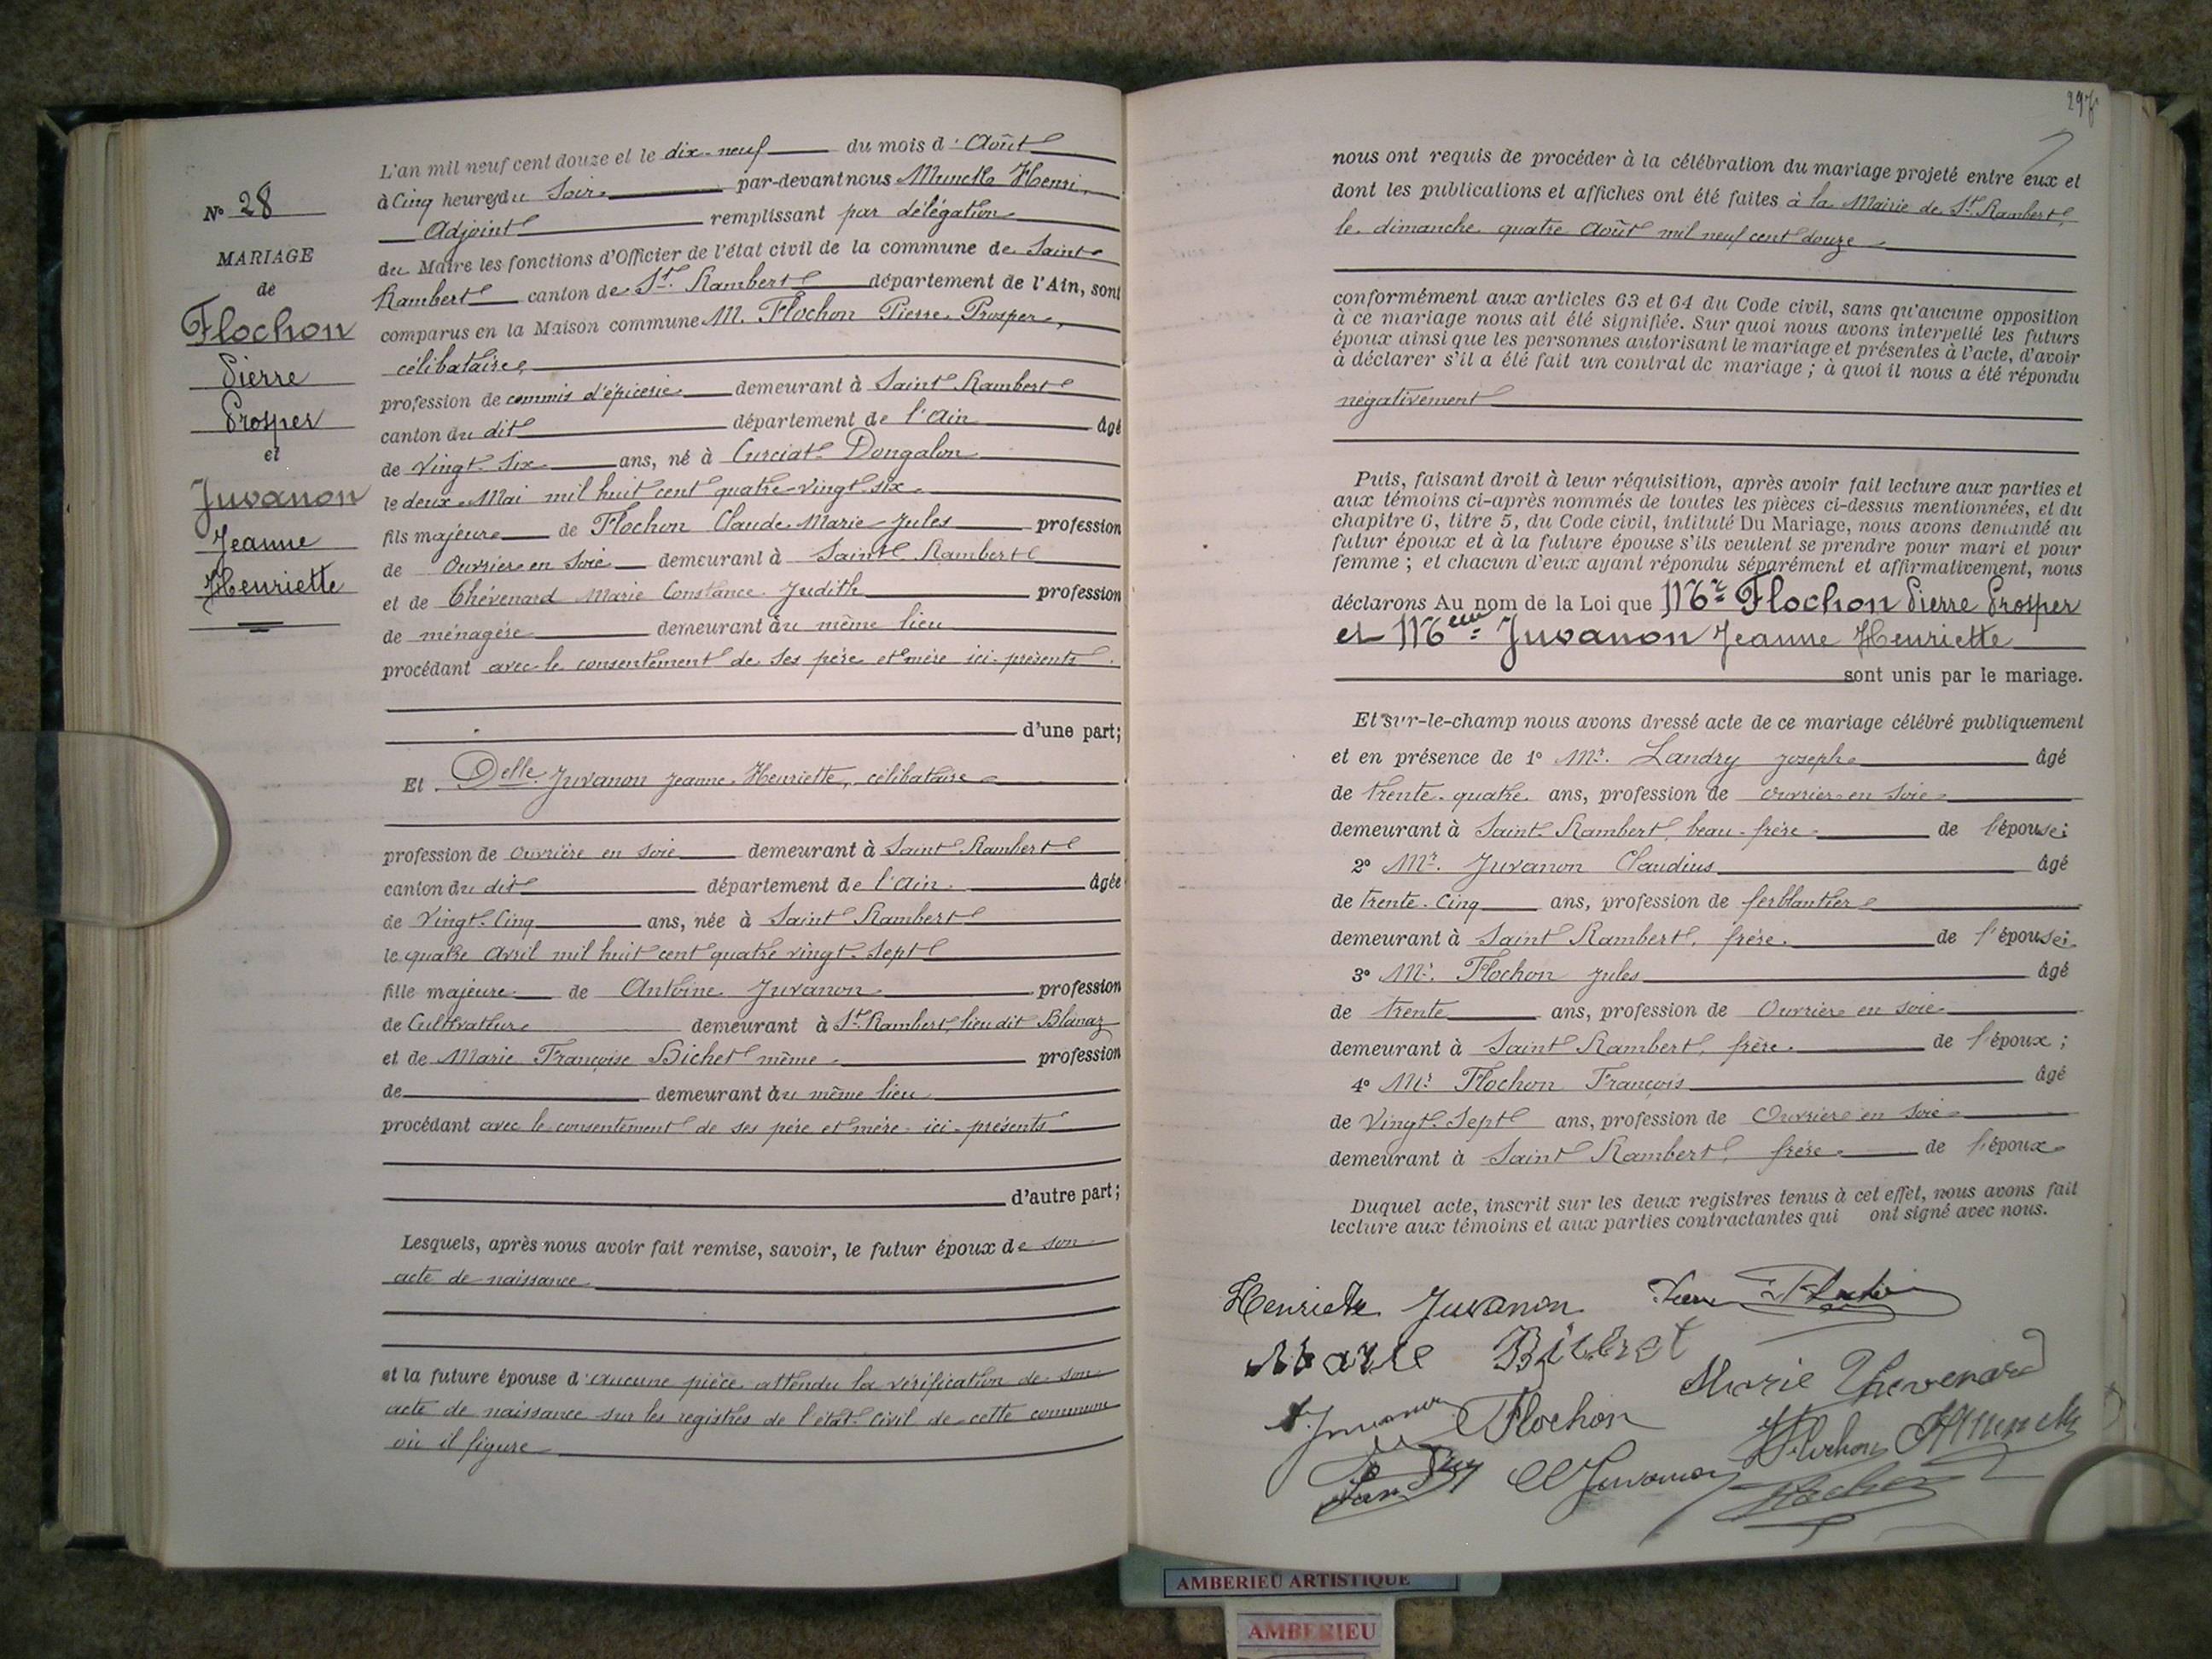 N° 28
MARIAGE
de
Flochon
Pierre
Prosper
et
Juvanon
Jeanne
Henriette
L'an mil neuf cent douze et le dix-neuf du mois d'Août
à Cinq heures du Soir par-devant nous Munck Henri,
Adjoint remplissant par délégation
du Maire les fonctions d'Officier de l'état civil de la commune de Saint
Rambert canton de St. Rambert département de l'Ain, sont
comparus en la Maison commune M. Flochon Pierre Prosper,
célibataire,
profession de commis d'épicerie demeurant à Saint Rambert
canton du dit département de l'Ain âgé
de vingt-six ans, né à Curciat-Dongalon
le deux Mai mil huit cent quatre-vingt-six
fils majeur de Flochon Claude Marie Jules profession
de Ouvrier en Soie demeurant à Saint Rambert
et de Thévenard Marie Constance Judith profession
de ménagère demeurant au même lieu
procédant avec le consentement de ses père et mère ici présents.
d'une part;
Et Delle Juvanon Jeanne Henriette, célibataire
profession de ouvrière en soie demeurant à Saint Rambert
canton du dit département de l'Ain. âgée
de Vingt-Cinq ans, née à Saint Rambert
le quatre Avril mil huit cent quatre vingt-sept
fille majeure de Antoine Juvanon profession
de Cultivateur demeurant à St. Rambert, lieu dit Blanaz
et de Marie Françoise Bichet même profession
de demeurant au même lieu
procédant avec le consentement de ses père et mère ici présents
d'autre part;
Lesquels, après nous avoir fait remise, savoir, le futur époux de son
acte de naissance
et la future épouse d'aucune pièce attendu la vérification de son
acte de naissance sur les registres de l'état civil de cette commune
où il figure
297
nous ont requis de procéder à la célébration du mariage projeté entre eux et
dont les publications et affiches ont été faites à la Mairie de St. Rambert
le dimanche quatre Août mil neuf cent douze
conformément aux articles 63 et 64 du Code civil, sans qu'aucune opposition
à ce mariage nous ait été signifiée. Sur quoi nous avons interpellé les futurs
époux ainsi que les personnes autorisant le mariage et présentes à l'acte, d'avoir
à déclarer s'il a été fait un contrat de mariage; à quoi il nous a été répondu
négativement
Puis, faisant droit à leur réquisition, après avoir fait lecture aux parties et
aux témoins ci-après nommés de toutes les pièces ci-dessus mentionnées, et du
chapitre 6, titre 5, du Code civil, intitulé Du Mariage, nous avons demandé au
futur époux et à la future épouse s'ils veulent se prendre pour mari et pour
femme; et chacun d'eux ayant répondu séparément et affirmativement, nous
déclarons Au nom de la Loi que Mr Flochon Pierre Prosper
et Melle Juvanon Jeanne Henriette
sont unis par le mariage.
Et sur-le-champ nous avons dressé acte de ce mariage célébré publiquement
et en présence de 1° Mr. Landry Joseph âgé
de trente-quatre ans, profession de ouvrier en soie
demeurant à Saint Rambert, beau-frère de l'épouse;
2° Mr. Juvanon Claudius âgé
de trente-Cinq ans, profession de ferblantier
demeurant à Saint Rambert, frère. de l'épouse;
3° Mr. Flochon Jules âgé
de trente ans, profession de Ouvrier en soie
demeurant à Saint Rambert, frère. de l'époux;
4° Mr Flochon François âgé
de Vingt-Sept ans, profession de Ouvrier en Soie
demeurant à Saint Rambert, frère de l'époux
Duquel acte, inscrit sur les deux registres tenus à cet effet, nous avons fait
lecture aux témoins et aux parties contractantes qui ont signé avec nous.
Henriette Juvanon
Marie Bichet
Marie Thevenard
Flochon
Flochon HMunck
Juvanon
AMBERIEU ARTISTIQUE
AMBERIEU